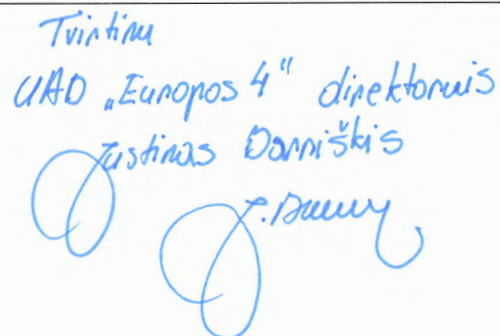 Tvirtinu
UAB „Europos 4“ direktorius
Justinas Darniškis
J.